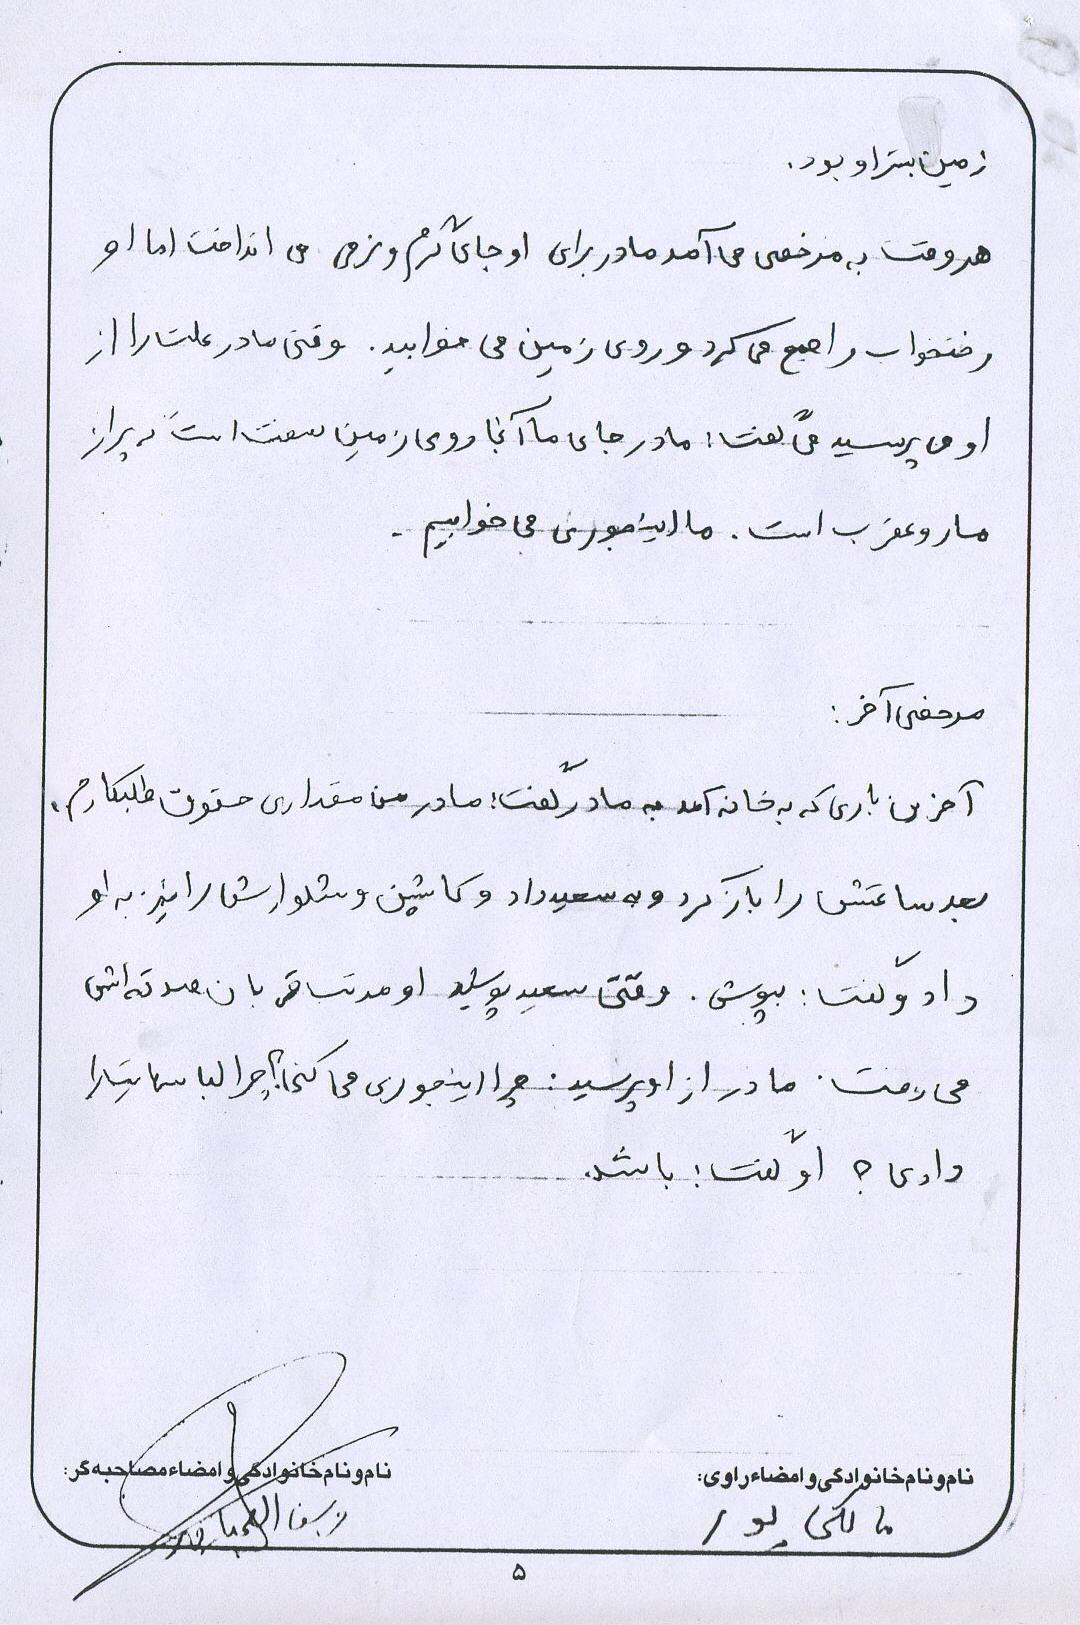 زمین بستر او بود.
هر وقت به مرخصی می آمد مادر برای او جای گرم و نرمی می انداخت اما او
رختخواب را جمع می کرد و روی زمین می خوابید. وقتی مادر علت را از
او می پرسید می گفت: مادر جای ما آنجا روی زمین سفت است که پر از
مار و عقرب است. ما اینجوری می خوابیم.
مرخصی آخر:
آخرین باری که به خانه آمد به مادر گفت: مادر من مقداری حقوق طلبکارم،
بعد ساعتش را باز کرد و به سعید داد و کاپشن و شلوارش را نیز به او
داد و گفت: بپوش. وقتی سعید پوشید او مدت قربان صدقه اش
می رفت. مادر از او پرسید: چرا اینجوری می کنی؟ چرا لباسهایت را
دادی؟ او گفت: باشد.
نام و نام خانوادگی و امضاء راوی:
مالکی پور
نام و نام خانوادگی و امضاء مصاحبه گر:
۵